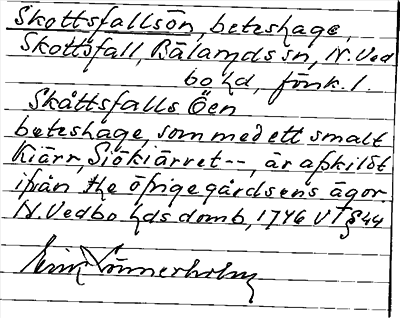 Skottsfallsön, beteshage,
Skottsfall, Bälaryds sn, N. Ved
bo hd, Jönk. l.
Skåttsfalls Öen
beteshage, som med ett smalt
Kiärr, Siökiärret--, är afskildt
ifrån the öfrige gårdsens ägor.
N. Vedbo hds domb, 1746 VT § 44